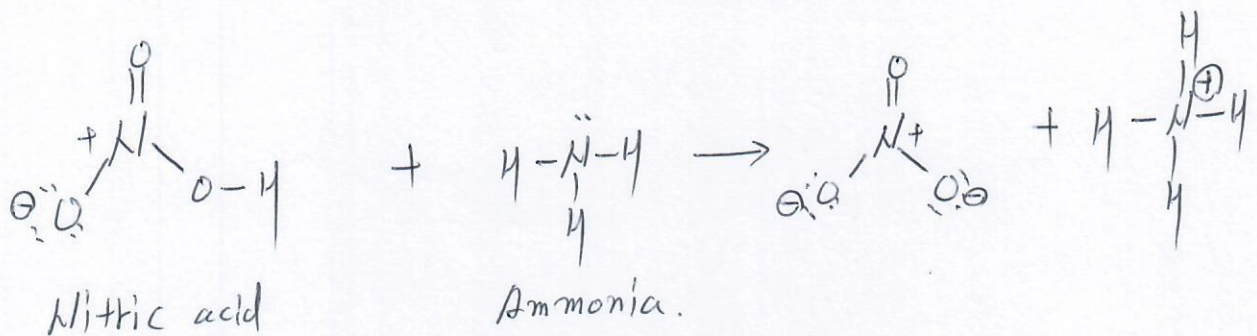 O
N
+
⊖ O
O-H
+
H-N-H
H
→
O
N+
⊖ O
O ⊖
+
H
H-N-H
⊕
H
Nitric acid
Ammonia.